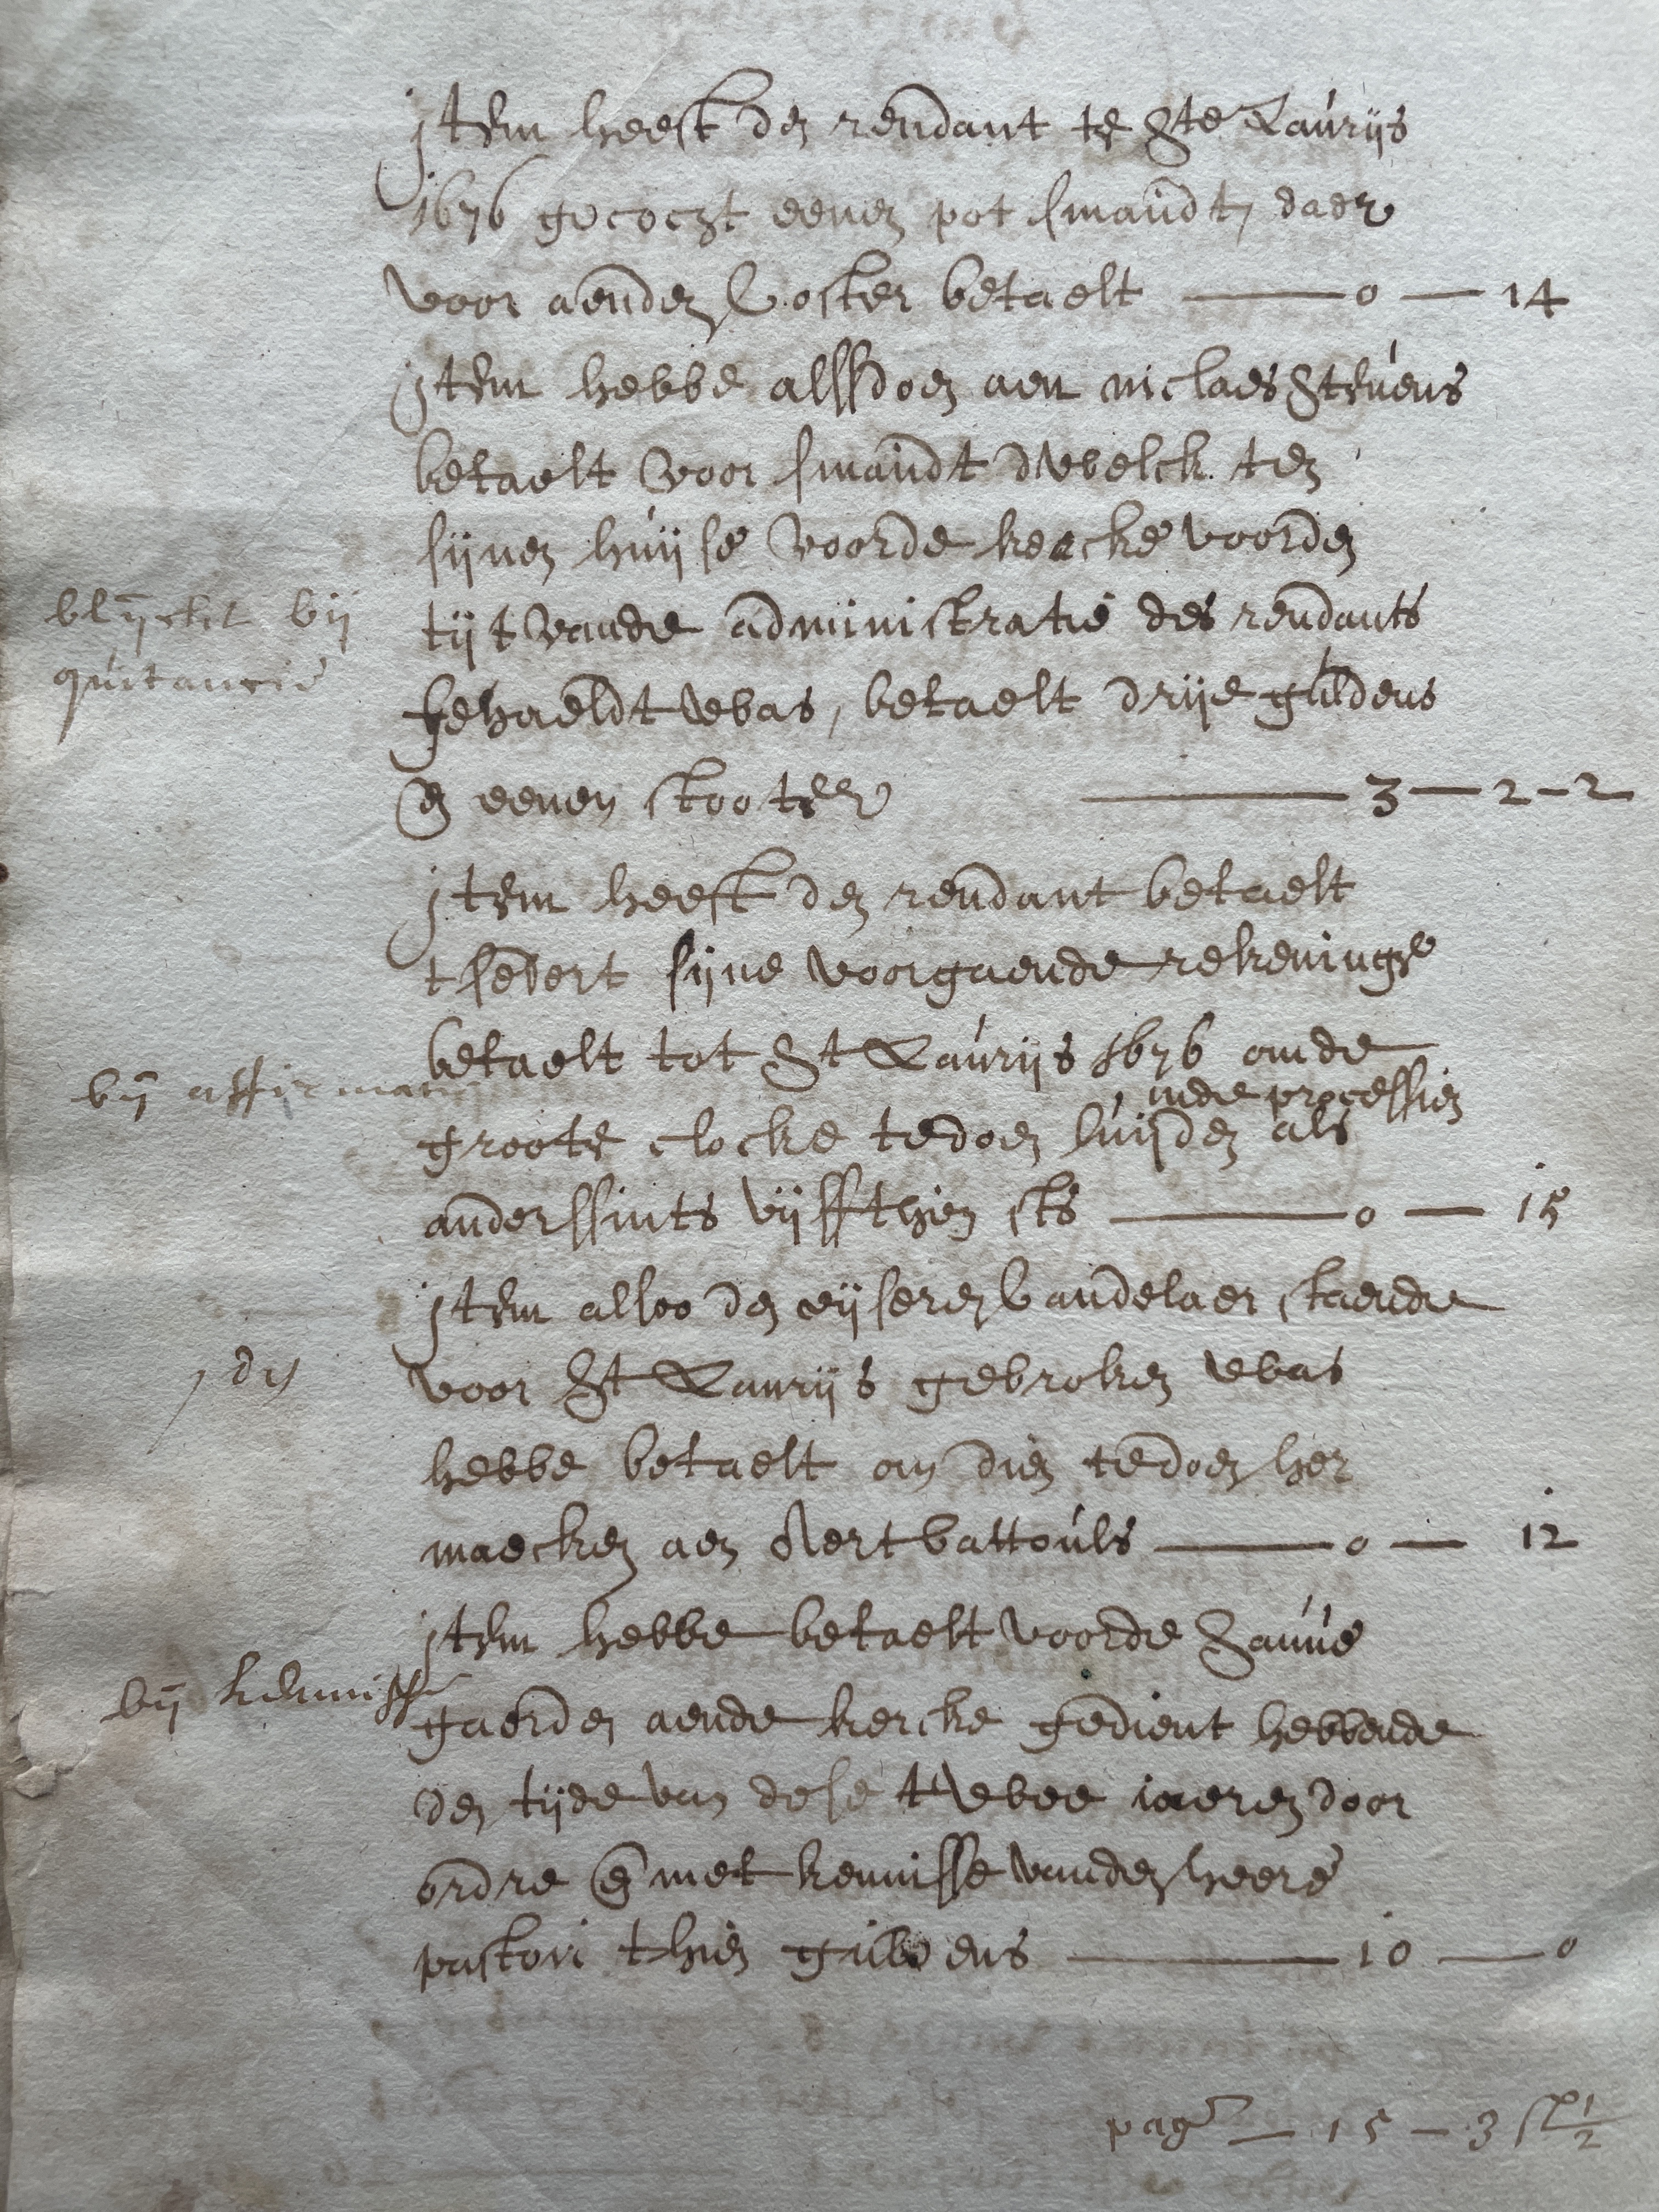 Item heeft den rendant te Ste Laurijs
1676 gecocht eenen pot smaudt, daer
voor aenden Coster betaelt — 0 — 14
Item hebbe allsdoen aen niclaes Steúens
betaelt voor smaudt dwelck ten
sijnen huijse voorde kercke voorden
blyckt bij
tijt vande administratie des rendants
quitancie
gehaeldt was, betaelt drije guldens
en eenen stooter — 3 — 2 - 2
Item heeft den rendant betaelt
tsedert sijne voorgaende rekeninge
betaelt tot St Laurijs 1676 om de
by affirmatie
inde processien
groote clocke te doen luijden als
anderssints vijffthien sts — 0 — 15
Item alsoo den eijseren Candelaer staende
idem
voor St Laurijs gebroken was
hebbe betaelt om dien te doen her
maecken aen Aert Cattouls — 0 — 12
Item hebbe betaelt voorde Sauúe
by kennisse
gaerden aende kercke gedient hebbende
den tijde van dese twee iaeren door
ordre en met kennisse vanden heere
pastori thien guldens — 10 — 0
pag — 15 — 3 st ½